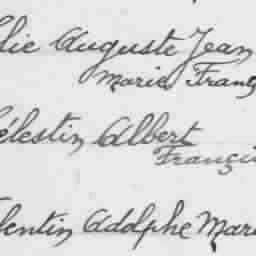 lie Auguste Jean
Marie Franç
élestin Albert
Franci
lentin Adolphe Mari